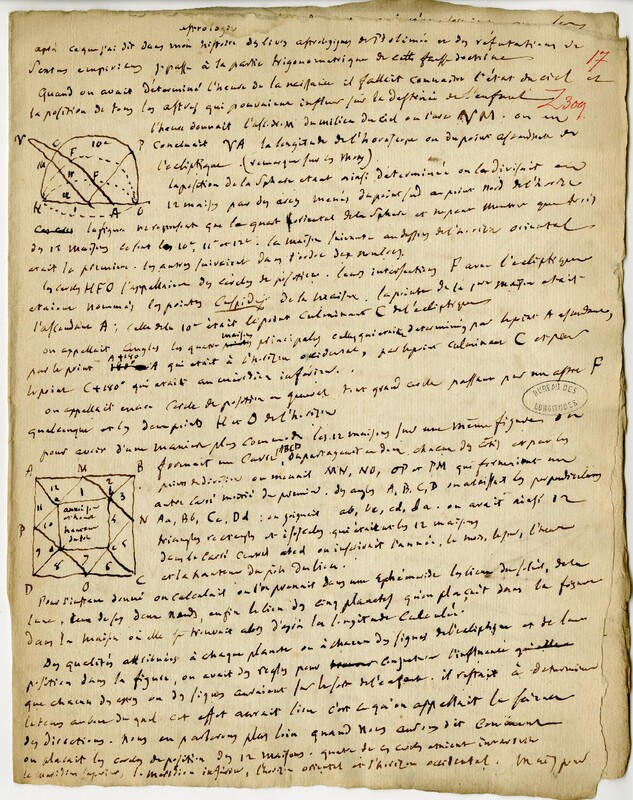 astrologie
après ce que j'ai dit dans mon histoire des livres astrologiques de Ptolémée et des réfutations de
Sextus empiricus je passe à la partie trigonometrique de cette fausse doctrine
17
Quand on avait déterminé l'heure de la naissance il fallait connaitre l'état du ciel et
la position de tous les astres qui pouvaient influer sur la destinée de l'enfant
Z309
l'heure donnait l'asc. dr. M du milieu du ciel ou l'arc VM. on en
concluait VA la longitude de l'horoscope ou du point ascendant de
l'ecliptique (remarque sur les mots)
la position de la sphere etant ainsi determinée on la divisait en
12 maisons par des arcs menés du point sud au point nord de l'horizon
la figure ne represente que le quart oriental de la sphere et ne peut montrer que trois
des 12 maisons ce sont les 10e, 11e et 12e. la maison suivante au dessous de l'horizon oriental
etait la premiere. les autres suivaient dans l'ordre des nombres.
les cercles HFO s'appellaient des cercles de position. leurs intersections F avec l'ecliptique
etaient nommés les pointes Cuspides de la maison. la pointe de la 1ere maison etait
l'ascendant A; celle de la 10e était le point culminant C de l'ecliptique
on appellait angles les quatre maisons principales celles qui etaient determinées par le point A ascendant,
par le point A+180° qui etait à l'horizon occidental, par le point culminant C et par
le point C+180° qui etait au méridien inférieur.
on appellait encore Cercle de position en general tout grand cercle passant par un astre F
quelconque et les deux points H et O de l'horizon
BUREAU DES LONGITUDES
pour avoir d'une maniere plus commode les 12 maisons sur une même figure on
formait un Carré ABCD, on partageait en deux chacun des côtés et par les
points de division on menait MN, NO, OP et PM qui formaient un
autre carré moitié du premier. des angles A, B, C, D on abaissait les perpendiculaires
Aa, Bb, Cc, Dd: on joignait ab, bc, cd, da. on avait ainsi 12
triangles rectangles et isosceles qui étaient les 12 maisons
dans le carré central abcd on inscrivait l'année, le mois, le jour, l'heure
et la hauteur du pole du lieu.
Pour l'instant donné on calculait ou l'on prenait dans une Ephémeride les lieux du soleil, de la
lune, de ses deux nœuds, enfin le lieu des cinq planetes qu'on plaçait dans la figure
dans la maison où elle se trouvait alors d'après la longitude calculée.
Des qualités attribuées à chaque planete ou à chacun des signes de l'ecliptique et de leur
position dans la figure, on avait des regles pour conjecturer l'influence
que chacun des astres ou des signes auraient sur le sort de l'enfant. il restait à determiner
le tems au bout duquel cet effet aurait lieu c'est ce qu'on appellait la science
des directions. Nous en parlerons plus loin quand nous aurons dit comment
on plaçait les cercles de position des 12 maisons. quatre de ces cercles etaient invariables
le meridien superieur, le meridien inférieur, l'horizon oriental et l'horizon occidental.